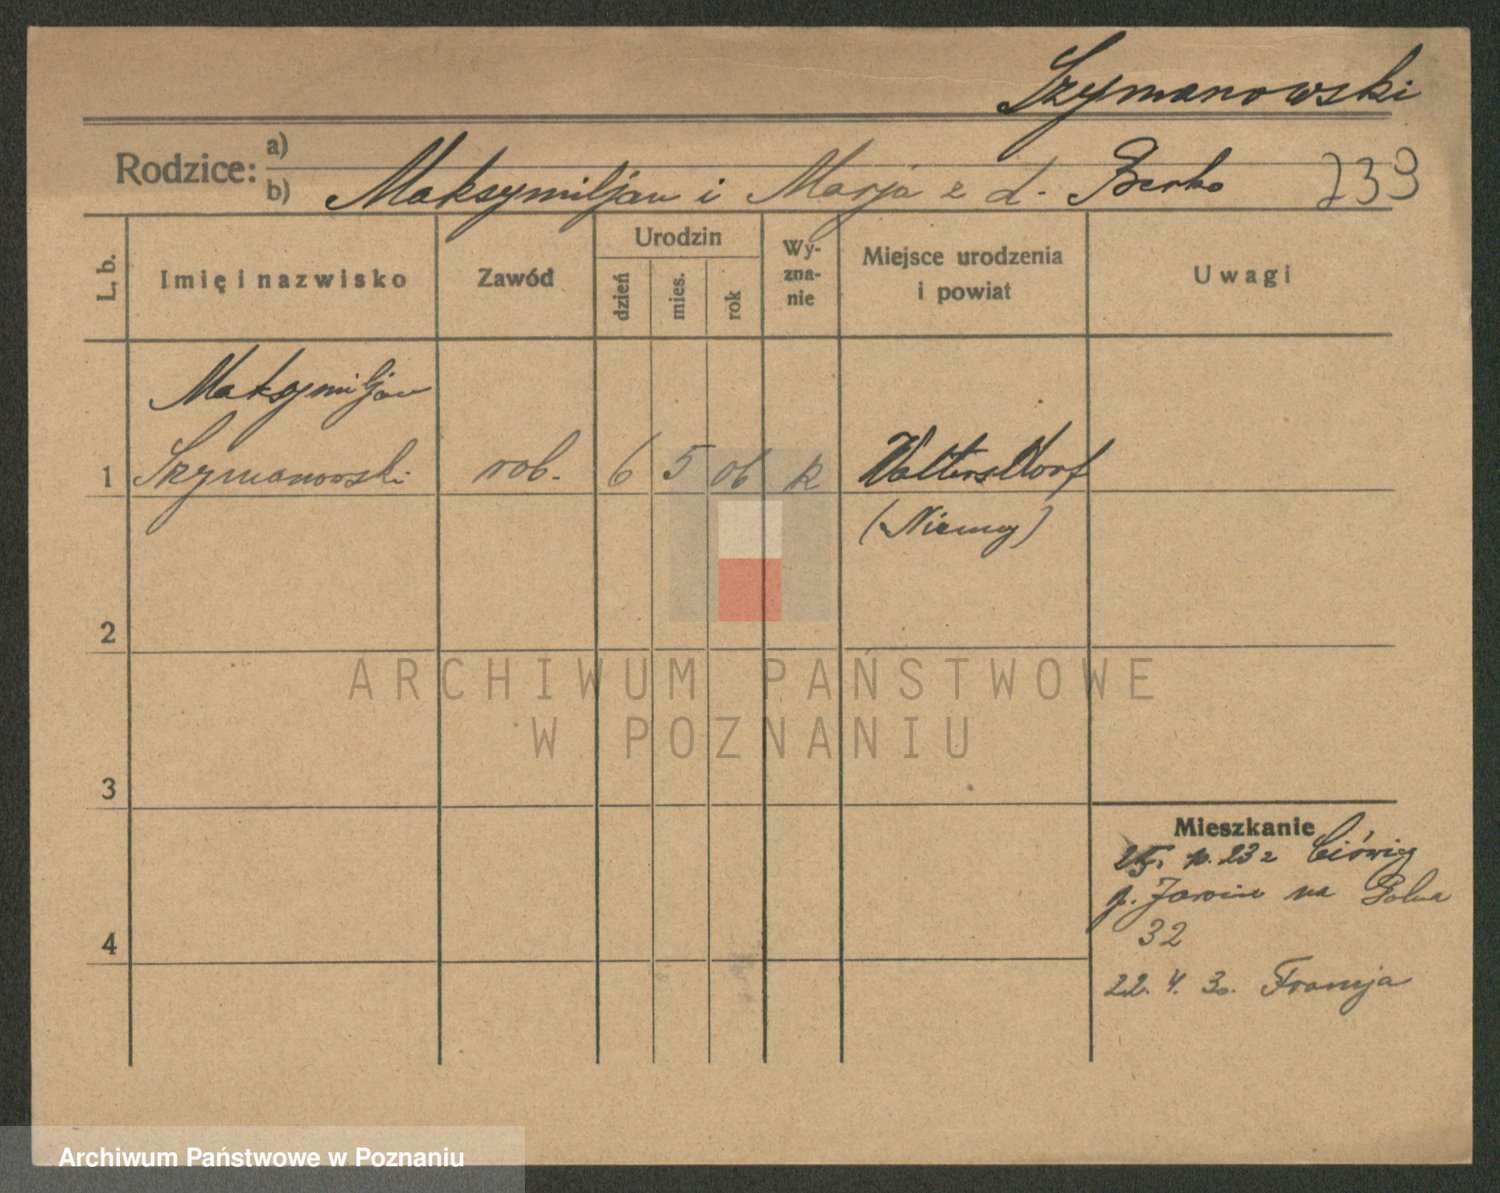 Szymanowski
Rodzice: a)
b) Maksymiljan i Marja z d. Berko
739
L. b.
Imię i nazwisko
Zawód
Urodzin
dzień
mies.
rok
Wy-
zna-
nie
Miejsce urodzenia
i powiat
Uwagi
Maksymiljan
1 Szymanowski rob. 6 5 06 k Waltersdorf
(Niemcy)
2
3
4
Mieszkanie
p. 23 z
p. Jarocin na Polna
32
22. 4. 30. Francja
ARCHIWUM PAŃSTWOWE
W POZNANIU
Archiwum Państwowe w Poznaniu